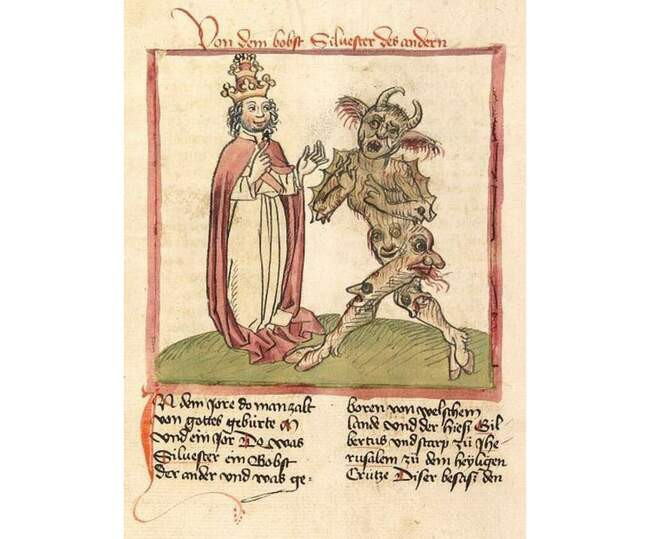 Von dem bobst Siluester des andern
IN dem Jore do man zalt
von gottes gebürte M
vnd ein Jor Do was
Siluester ein Bobst
der ander vnd was ge-
boren von welschem
lande vnd der hiesß Gil
bertus vnd starp zů Jhe
rusalem zů dem heyligen
Crütze Diser besasß den